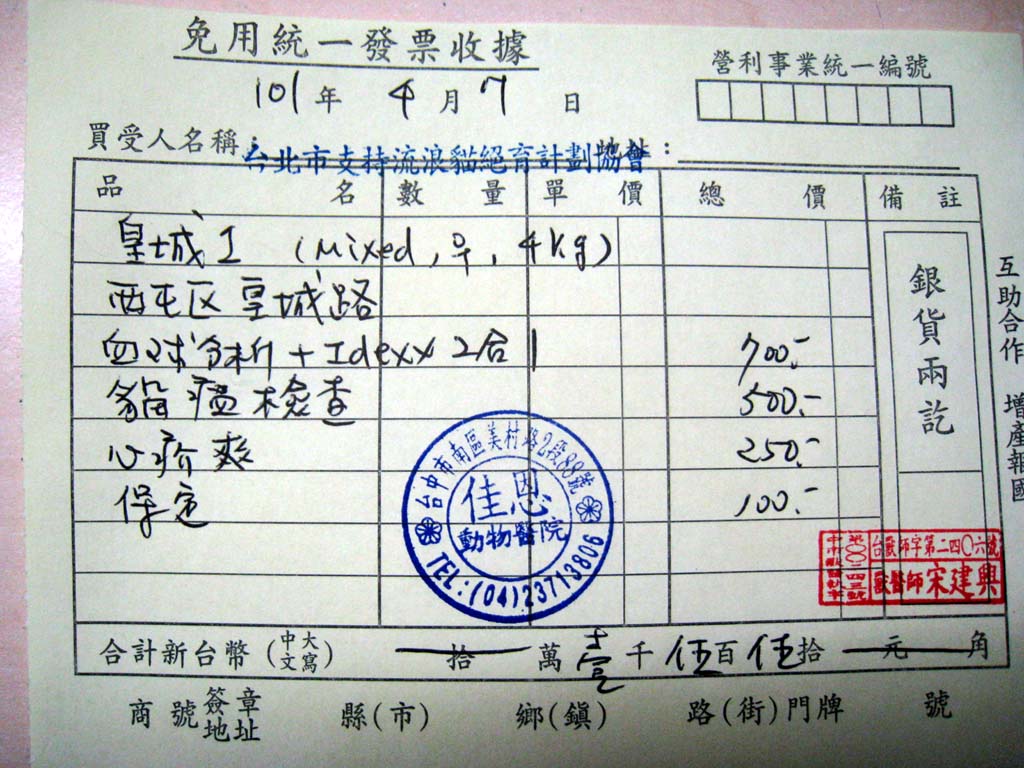 免用統一發票收據
營利事業統一編號
101年 4月7日
買受人名稱：台北市支持流浪貓絕育計劃協會：
品名 數量 單價 總價 備註
皇城I (Mixed, ♀, 4kg)
西屯区皇城路
血球分析+Idexx 2合1 700.-
貓瘟檢查 500.-
心疥爽 250.-
保定 100.-
銀貨兩訖
互助合作 增產報國
台中市南區美村路2段88號
佳恩
動物醫院
TEL:(04)23713806
台獸師字第二四〇六號
獸醫師宋建興
合計新台幣(中文大寫) 拾 萬 壹 千 伍 百 伍 拾 元 角
商號簽章地址 縣(市) 鄉(鎮) 路(街)門牌 號